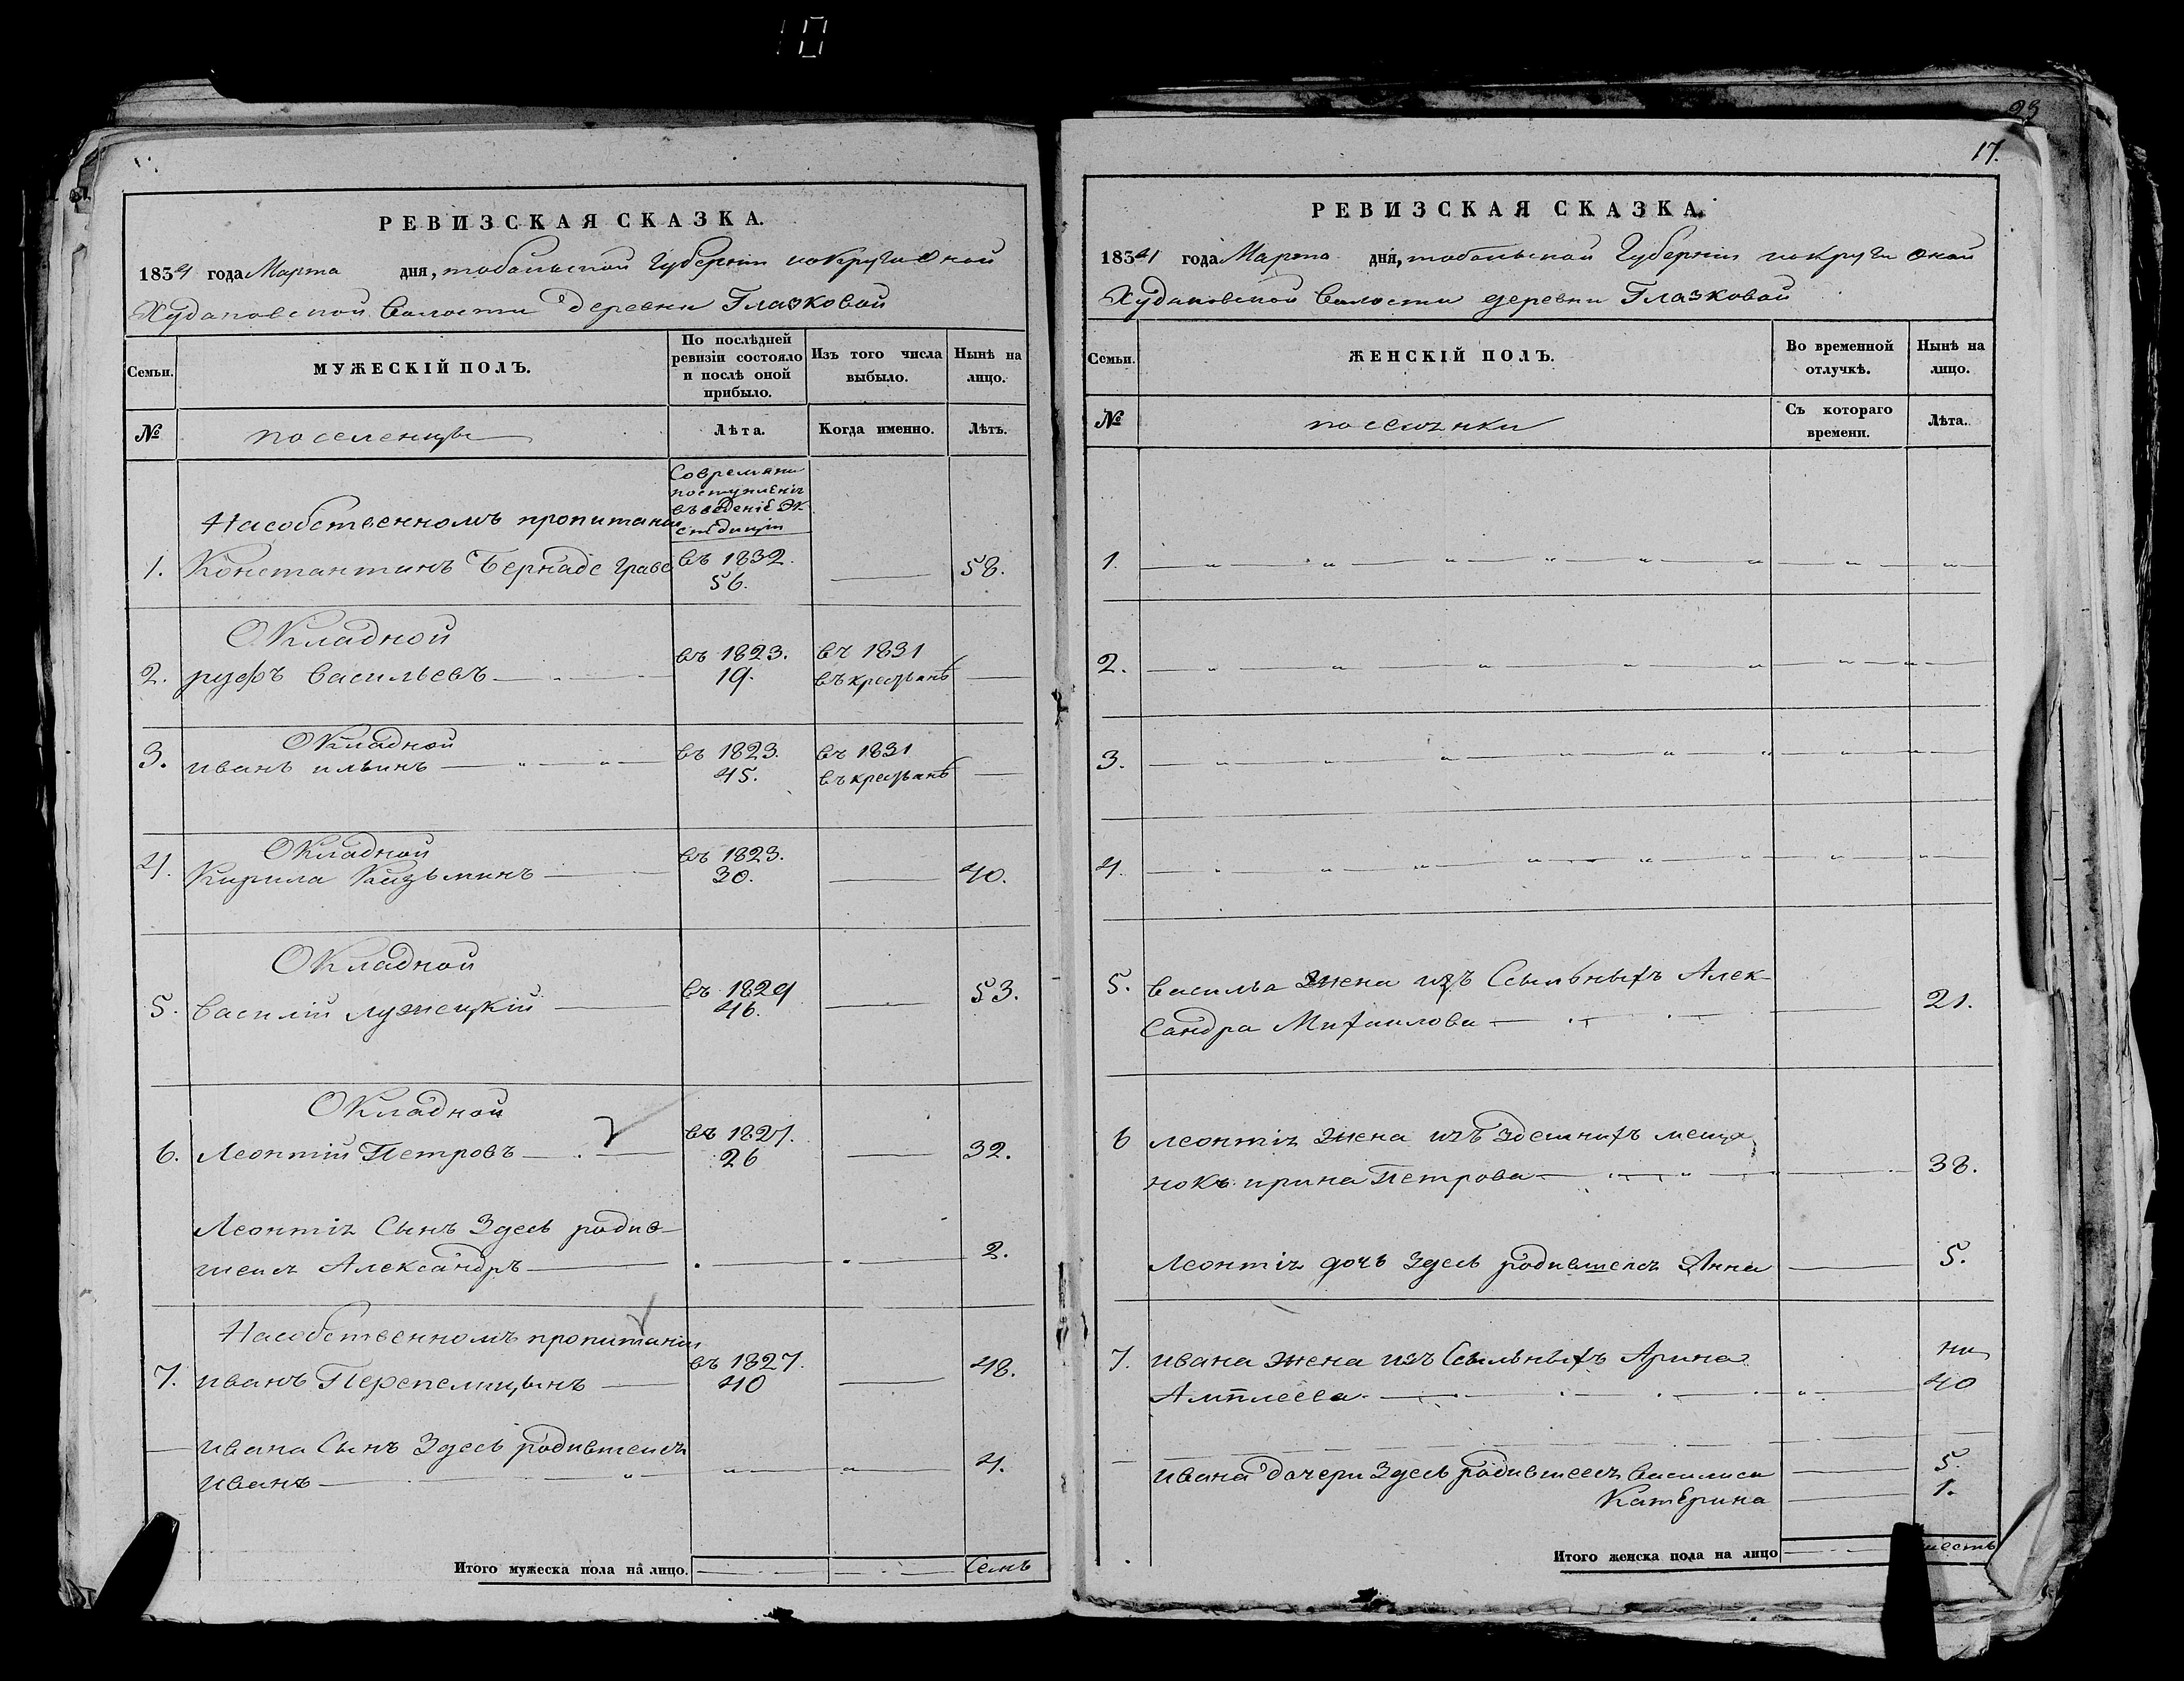 10
РЕВИЗСКАЯ СКАЗКА.
1834 года Марта дня, тобольской Губернии и округи оной
Худаковской Волости деревни Глазковой
Семьи.
МУЖЕСКІЙ ПОЛЪ.
По послѣдней
ревизіи состояло
и послѣ оной
прибыло.
Изъ того числа
выбыло.
Нынѣ на
лицо.
№
поселенцы
Лѣта.
Когда именно.
Лѣтъ.
Насобственномъ пропитаніи
Современи
поступленія
въвѣденіе Эк
спедиціи
1. Константинъ Бернадс Граве въ 1832. 58.
56.
Окладной
2. руфъ васильевъ въ 1823. въ 1831
19. въ крестьянѣ
Окладной
3. иванъ ильинъ въ 1823. въ 1831
45. въ крестьянѣ
Окладной
4. Кирила Кузьминъ въ 1823. 40.
30.
Окладной
5. василій лужецкій въ 1829 53.
46.
Окладной
6. Леонтій Петровъ въ 1827. 32.
26
Леонтія Сынъ Здесь родив-
шеися Александръ 2.
Насобственномъ пропитаніи
7. иванъ Перепелицынъ въ 1827. 48.
40
ивана Сынъ Здесь родившеися
иванъ 4.
Итого мужеска пола на лицо. Семь
23
17.
РЕВИЗСКАЯ СКАЗКА.
1834 года Марта дня, тобольской Губерніи и округи оной
Худаковской Волости деревни Глазковой
Семьи.
ЖЕНСКІЙ ПОЛЪ.
Во временной
отлучкѣ.
Нынѣ на
лицо.
№
поселенки
Съ котораго
времени.
Лѣта.
1.
2.
3.
4.
5. васильа жена изъ Ссыльныхъ Алек-
сандра Михаилова 21.
6 леонтія жена изъ здешнихъ меща
нокъ ирина Петрова 38.
Леонтія дочь здесь родившеися Анна 5.
7. ивана жена изъ Ссыльныхъ Арина
Амплеева 40
ивана дочери Здесь родившеесь василиса 5.
Катерина 1.
Итого женска пола на лицо шесть